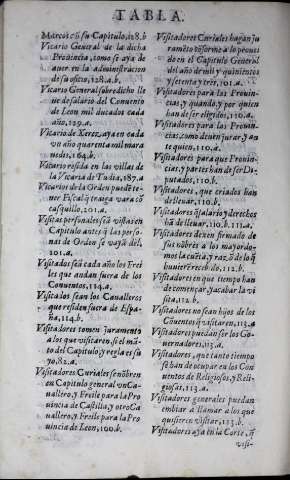 TABLA.
Marcos cõ su Capitulo, 128.b
Vicario General de la dicha
Prouincia, como se aya de
auer en la administracion
de su oficio, 128.a.b.
Vicario General sobredicho lle
ue de salario del Conuento
de Leon mil ducados cada
año, 129.a.
Vicario de Xerez, aya en cada
vn año quarenta mil mara
uedis, 164.b.
Vicario resida en las villas de
la Vicaria de Tudia, 187.a
Vicarios de la Orden puedẽ te-
ner Fiscal q̃ trayga vara cõ
casquillo, 201.a.
Visitas personales seã vistas en
Capitulo antes q̃ las perso-
nas de Orden se vayã dẽl.
201.a.
Visitados seã cada año los Frei
les que andan fuera de los
Conuentos, 114.a.
Visitalos sean los Caualleros
que residen fuera de Espa-
ña, 114.b.
Visitadores tomen juramento
a los que visitaren, si el mã-
to del Capitulo y regla es su
yo, 82.a.
Visitadores Curiales se nõbren
en Capitulo general vn Ca-
uallero, y Freile para la Pro
uincia de Castilla, y otro Ca
uallero, y Freile para la Pro
uincia de Leon, 100.b.
Visitadores Curiales hagan ju
ramẽto cõforme a lo proueeî
do en el Capitulo General
del año de mil y quinientos
y setenta y tres, 101.a.
Visitadores para las Prouin-
cias, y quando, y por quien
han de ser elegidos, 110.a.
Visitadores para las Prouin-
cias, como deuen jurar, y an
te quien, 110.a.
Visitadores para que Prouin-
cias, y partes han de ser Di-
putados, 110.b.
Visitadores, que criados han
de lleuar, 110.b.
Visitadores q̃ salario y derechos
hã de lleuar, 110.b. 111.a.
Visitadores dexen firmado de
sus nõbres a los mayordo-
mos la cuẽta, y razõ de lo q̃
huuierẽ recebido, 112.b.
Visitadores en que tiempo han
de començar, y acabar la vi
sita, 112.b.
Visitadores no sean hijos de los
Cõuentos q̃ visitaren, 113.a
Visitadores puedan ser los Go-
uernadores, 113.a.
Visitadores, que tanto tiempo
se han de ocupar en los Con
uentos de Religiosos, y Reli-
giosas, 113.a.
Visitadores generales puedan
embiar a llamar a los que
quisieren visitar, 113.b.
Visitadores aya en la Corte, ñ
visi-